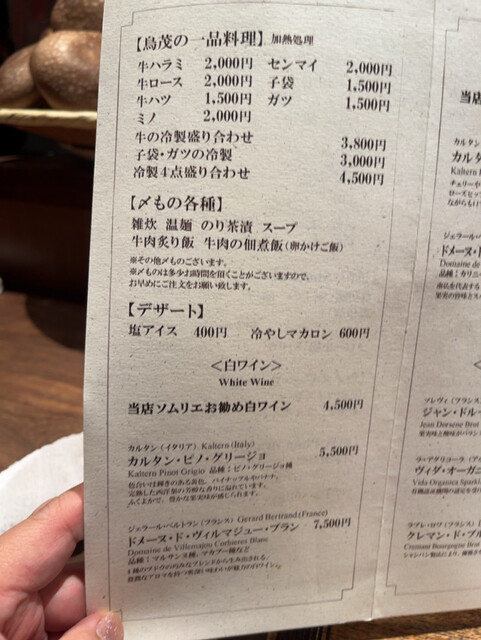 【鳥茂の一品料理】 加熱処理
牛ハラミ 2,000円 センマイ 2,000円
牛ロース 2,000円 子袋 1,500円
牛ハツ 1,500円 ガツ 1,500円
ミノ 2,000円
牛の冷製盛り合わせ 3,800円
子袋・ガツの冷製 3,000円
冷製4点盛り合わせ 4,500円
【〆もの各種】
雑炊 温麺 のり茶漬 スープ
牛肉炙り飯 牛肉の佃煮飯(卵かけご飯)
※その他〆ものございます。
※〆ものは多少お時間を頂くことがございますので、
お早めにご注文をお願い致します。
【デザート】
塩アイス 400円 冷やしマカロン 600円
<白ワイン>
White Wine
当店ソムリエお勧め白ワイン 4,500円
カルタン(イタリア) Kaltern(Italy)
カルタン・ピノ・グリージョ 5,500円
Kaltern Pinot Grigio 品種:ピノ・グリージョ種
色合いは輝きのある黄色。パイナップルやバナナ、
完熟した西洋梨の芳醇な香りに溢れています。
ふくよかで、豊かな果実味が感じられます。
ジェラールベルトラン(フランス) Gerard Bertrand(France)
ドメーヌ・ド・ヴィルマジュー・ブラン 7,500円
Domaine de Villemajou Corbieres Blanc
品種:マルサンヌ種、マカブー種など
当店
カルタ
カルタ
Kaltern
チェリーや
ローズヒッ
ながらも
ジェラール
ドメーヌ・
Domaine de
品種:カリニ
南仏を代表する
果実の旨味とス
ソレヴィ(フランス)
ジャン・ドル
Jean Dorsene Brut
果実味と酸味がバラン
ラ・アダリコーラ
ヴィダ・オーガニ
Vida Organica Spark
有機認証機関の認定を受
クレマン・ド・ブル
Cremant Bourgogne Brut